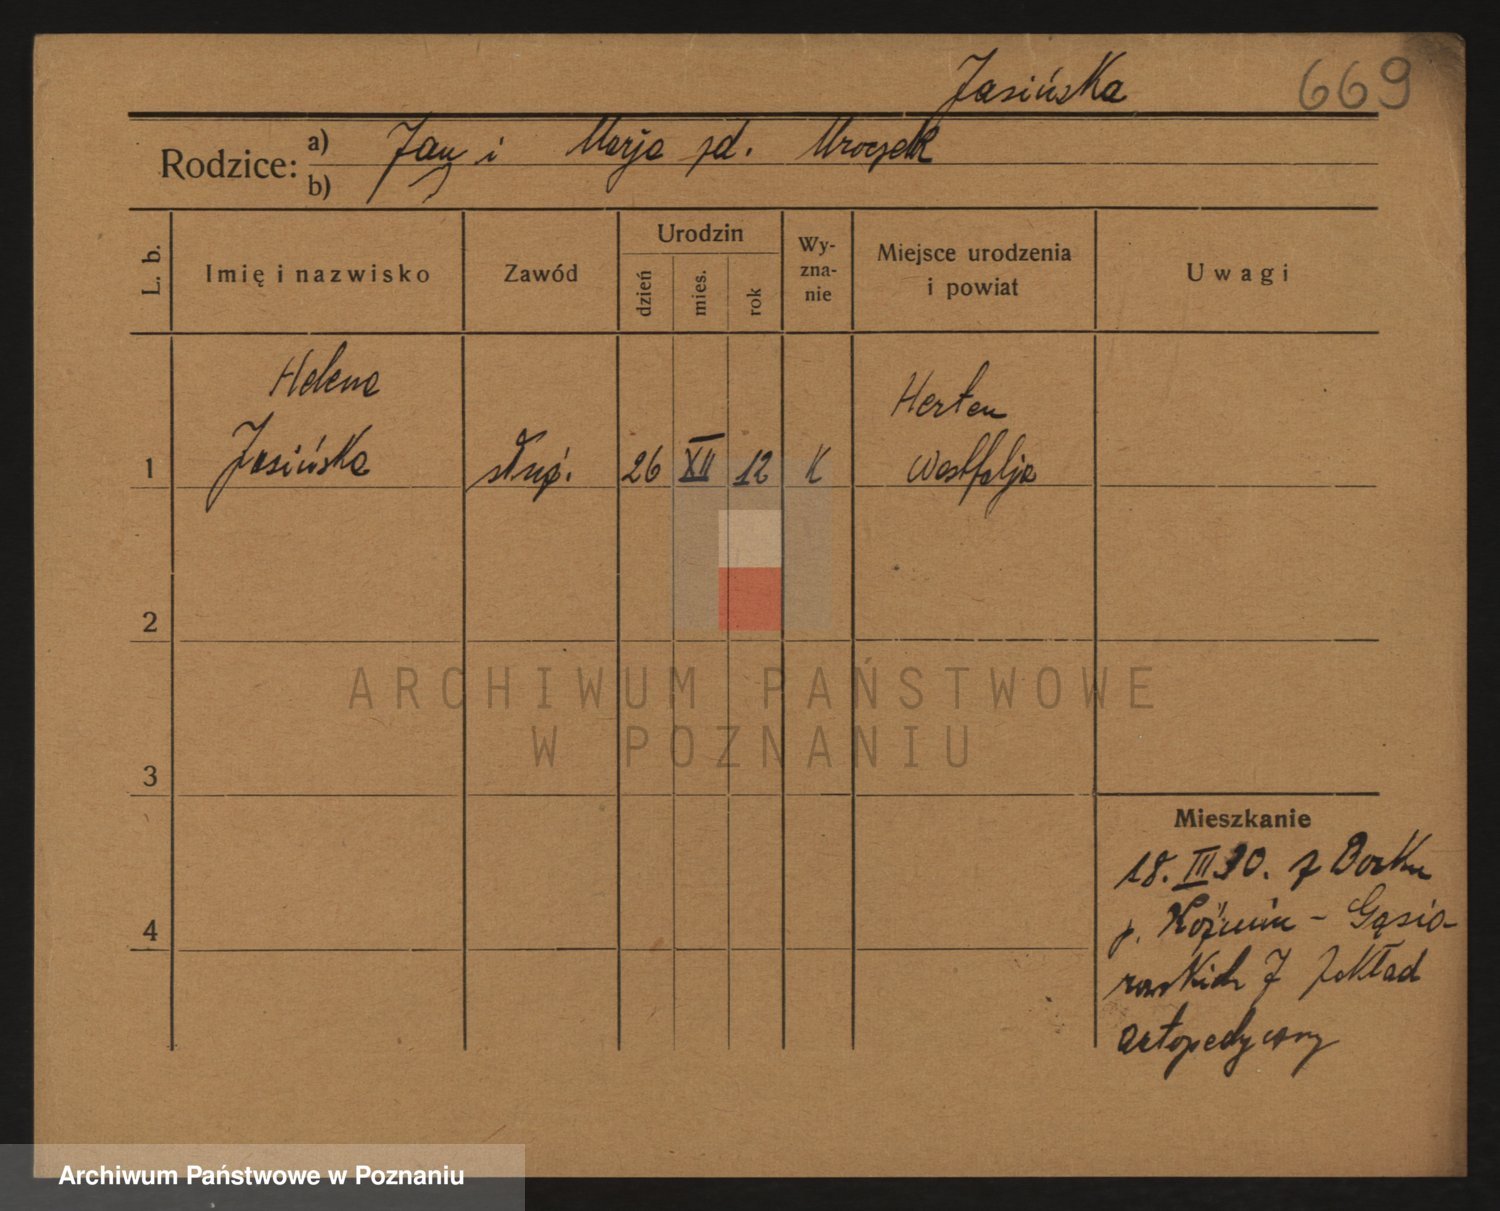 Jasińska 669
Rodzice: a) Jan i Marja zd. Mroczek
b)
L. b. Imię i nazwisko Zawód Urodzin dzień mies. rok Wy-zna-nie Miejsce urodzenia i powiat Uwagi
Helena
Jasińska
1 służ. 26 XII 12 K
Herten
Westfalja
2
ARCHIWUM PAŃSTWOWE
W POZNANIU
3
Mieszkanie
18. III 30. z Borku
p. Koźmin - Gąsio-
rowskich 7 Zakład
4
ortopedyczny
Archiwum Państwowe w Poznaniu